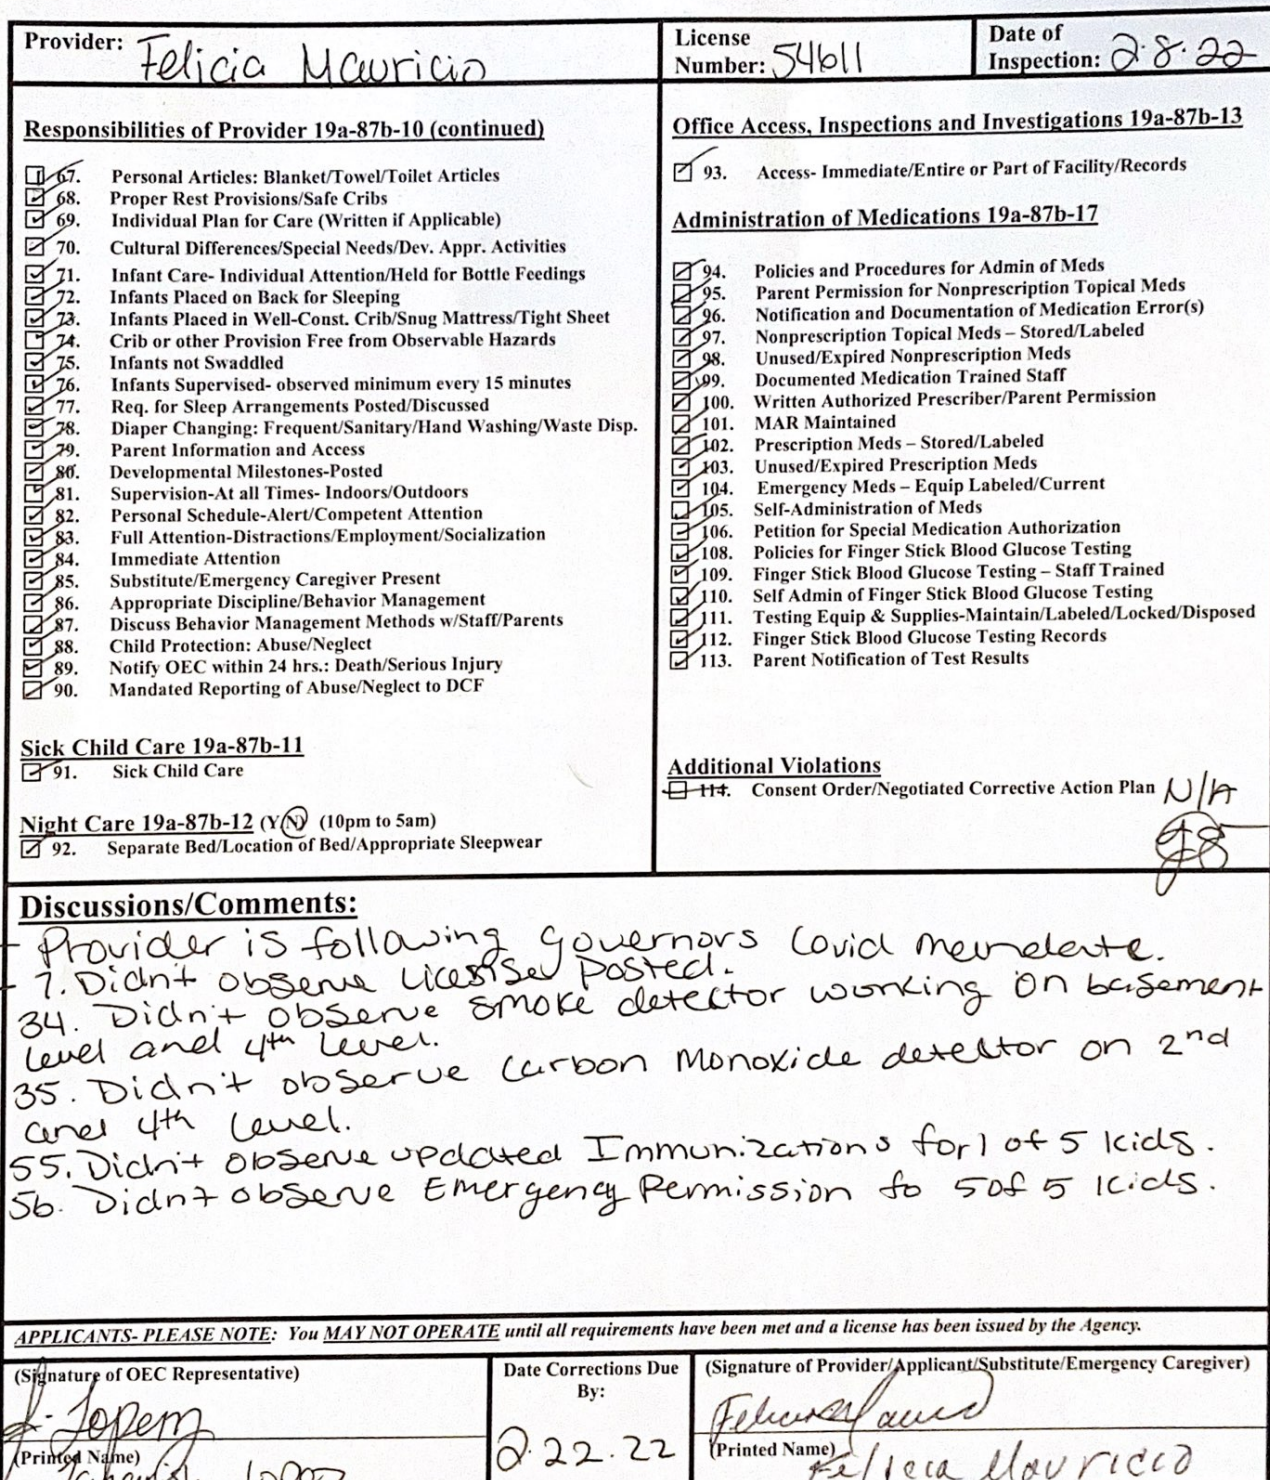 Provider: Felicia Mauricio
License Number: 54611
Date of Inspection: 2.8.22
Responsibilities of Provider 19a-87b-10 (continued)
67. Personal Articles: Blanket/Towel/Toilet Articles
68. Proper Rest Provisions/Safe Cribs
69. Individual Plan for Care (Written if Applicable)
70. Cultural Differences/Special Needs/Dev. Appr. Activities
71. Infant Care- Individual Attention/Held for Bottle Feedings
72. Infants Placed on Back for Sleeping
73. Infants Placed in Well-Const. Crib/Snug Mattress/Tight Sheet
74. Crib or other Provision Free from Observable Hazards
75. Infants not Swaddled
76. Infants Supervised- observed minimum every 15 minutes
77. Req. for Sleep Arrangements Posted/Discussed
78. Diaper Changing: Frequent/Sanitary/Hand Washing/Waste Disp.
79. Parent Information and Access
80. Developmental Milestones-Posted
81. Supervision-At all Times- Indoors/Outdoors
82. Personal Schedule-Alert/Competent Attention
83. Full Attention-Distractions/Employment/Socialization
84. Immediate Attention
85. Substitute/Emergency Caregiver Present
86. Appropriate Discipline/Behavior Management
87. Discuss Behavior Management Methods w/Staff/Parents
88. Child Protection: Abuse/Neglect
89. Notify OEC within 24 hrs.: Death/Serious Injury
90. Mandated Reporting of Abuse/Neglect to DCF
Sick Child Care 19a-87b-11
91. Sick Child Care
Night Care 19a-87b-12 (Y/N) (10pm to 5am)
92. Separate Bed/Location of Bed/Appropriate Sleepwear
Office Access, Inspections and Investigations 19a-87b-13
93. Access- Immediate/Entire or Part of Facility/Records
Administration of Medications 19a-87b-17
94. Policies and Procedures for Admin of Meds
95. Parent Permission for Nonprescription Topical Meds
96. Notification and Documentation of Medication Error(s)
97. Nonprescription Topical Meds – Stored/Labeled
98. Unused/Expired Nonprescription Meds
99. Documented Medication Trained Staff
100. Written Authorized Prescriber/Parent Permission
101. MAR Maintained
102. Prescription Meds – Stored/Labeled
103. Unused/Expired Prescription Meds
104. Emergency Meds – Equip Labeled/Current
105. Self-Administration of Meds
106. Petition for Special Medication Authorization
108. Policies for Finger Stick Blood Glucose Testing
109. Finger Stick Blood Glucose Testing – Staff Trained
110. Self Admin of Finger Stick Blood Glucose Testing
111. Testing Equip & Supplies-Maintain/Labeled/Locked/Disposed
112. Finger Stick Blood Glucose Testing Records
113. Parent Notification of Test Results
Additional Violations
114. Consent Order/Negotiated Corrective Action Plan N/A
Discussions/Comments:
- Provider is following governors Covid mandate.
- 7. Didn't observe License posted.
34. Didn't observe smoke detector working on basement
level and 4th level.
35. Didn't observe carbon Monoxide detector on 2nd
and 4th level.
55. Didn't observe updated Immunizations for 1 of 5 kids.
56. Didn't observe Emergency Permission fo 5 of 5 kids.
APPLICANTS- PLEASE NOTE: You MAY NOT OPERATE until all requirements have been met and a license has been issued by the Agency.
(Signature of OEC Representative)
(Printed Name)
Date Corrections Due
By:
2.22.22
(Signature of Provider/Applicant/Substitute/Emergency Caregiver)
(Printed Name)
Felicia Mauricio